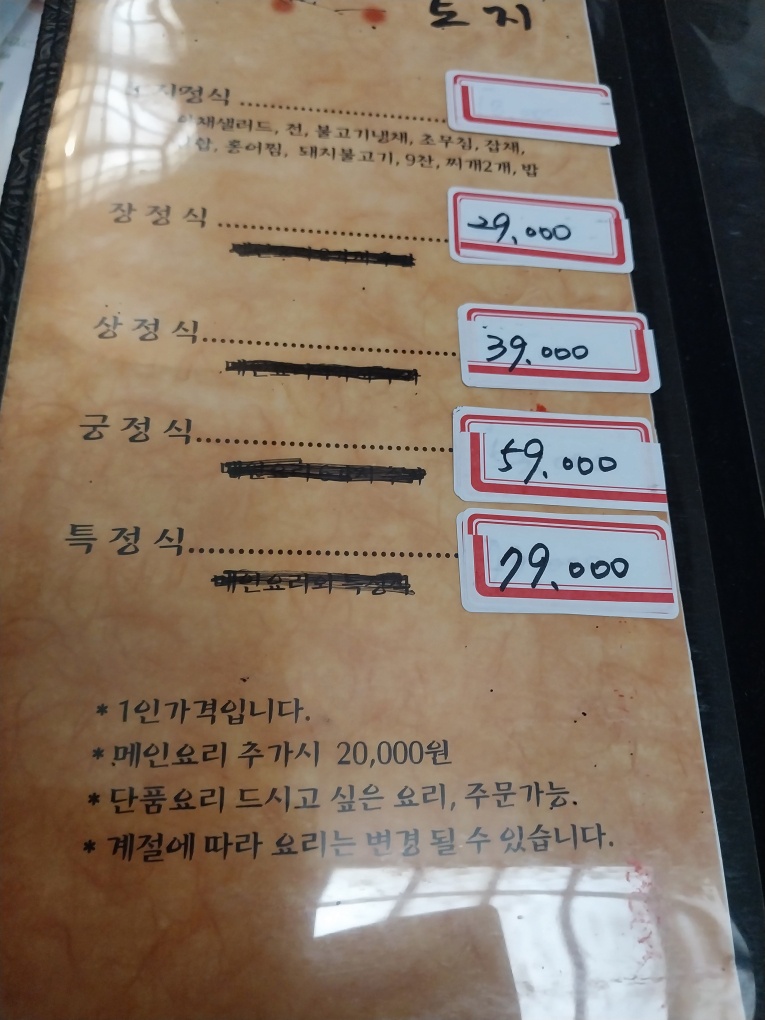 토지
정식 ........................
야채샐러드, 전, 불고기냉채, 초무침, 잡채,
홍어찜, 돼지불고기, 9찬, 찌개2개, 밥
장 정 식 ........................ 29,000
상 정 식 ........................ 39,000
궁 정 식 ........................ 59,000
특 정 식 ........................ 79,000
* 1인가격입니다.
* 메인요리 추가시 20,000원
* 단품요리 드시고 싶은 요리, 주문가능.
* 계절에 따라 요리는 변경 될 수 있습니다.